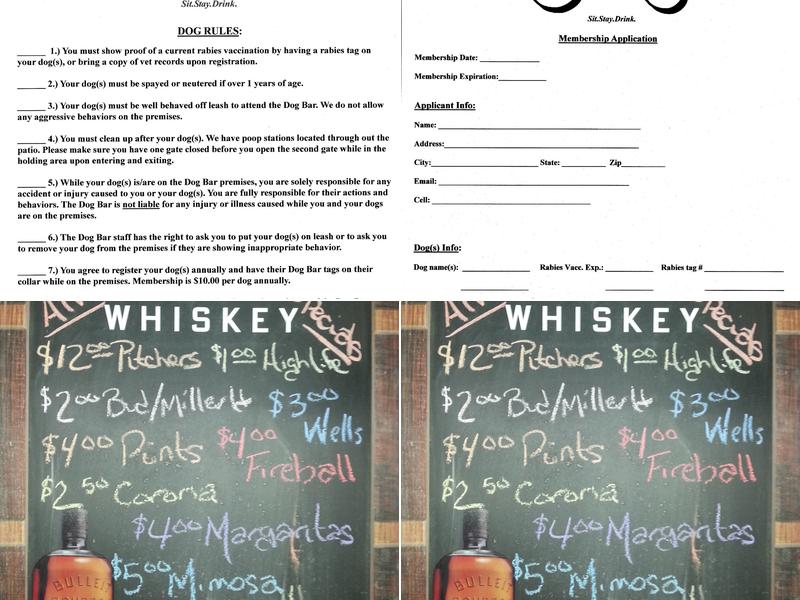 Sit.Stay.Drink.
DOG RULES:
______ 1.) You must show proof of a current rabies vaccination by having a rabies tag on
your dog(s), or bring a copy of vet records upon registration.
______ 2.) Your dog(s) must be spayed or neutered if over 1 years of age.
______ 3.) Your dog(s) must be well behaved off leash to attend the Dog Bar. We do not allow
any aggressive behaviors on the premises.
______ 4.) You must clean up after your dog(s). We have poop stations located through out the
patio. Please make sure you have one gate closed before you open the second gate while in the
holding area upon entering and exiting.
______ 5.) While your dog(s) is/are on the Dog Bar premises, you are solely responsible for any
accident or injury caused to you or your dog(s). You are fully responsible for their actions and
behaviors. The Dog Bar is not liable for any injury or illness caused while you and your dogs
are on the premises.
______ 6.) The Dog Bar staff has the right to ask you to put your dog(s) on leash or to ask you
to remove your dog from the premises if they are showing inappropriate behavior.
______ 7.) You agree to register your dog(s) annually and have their Dog Bar tags on their
collar while on the premises. Membership is $10.00 per dog annually.
Sit.Stay.Drink.
Membership Application
Membership Date: ______________
Membership Expiration:___________
Applicant Info:
Name: ______________
Address:______________
City:______________ State: __________ Zip__________
Email: ______________
Cell: ______________
Dog(s) Info:
Dog name(s): ______________ Rabies Vacc. Exp.: __________ Rabies tag # ______________
WHISKEY
$12.00 Pitchers $1.00 Highlife
$2.00 Bud/Miller lt $3.00
Wells
$4.00 Pints $4.00
Fireball
$2.50 Corona
$4.00 Margaritas
$5.00 Mimosa
BULLEIT
WHISKEY
$12.00 Pitchers $1.00 Highlife
$2.00 Bud/Miller lt $3.00
Wells
$4.00 Pints $4.00
Fireball
$2.50 Corona
$4.00 Margaritas
$5.00 Mimosa
BULLEIT